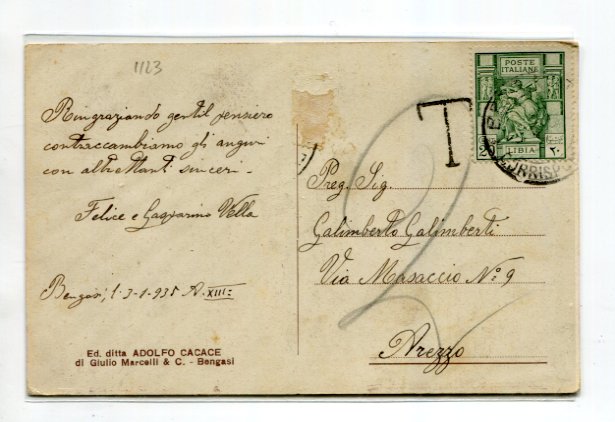 1123
Ringraziando gentil pensiero
contraccambiamo gli auguri
con altrettant sinceri -
Felice e Vella
Bengasi, li 3-1-935 A. XIII:
Ed. ditta ADOLFO CACACE
di Giulio Marcelli & C. - Bengasi
POSTE
ITALIANE
LIBIA
20
٢٠
T
CORRISP
Preg. Sig.
Galimberto Galimberti
Via Masaccio Nº 9
Arezzo